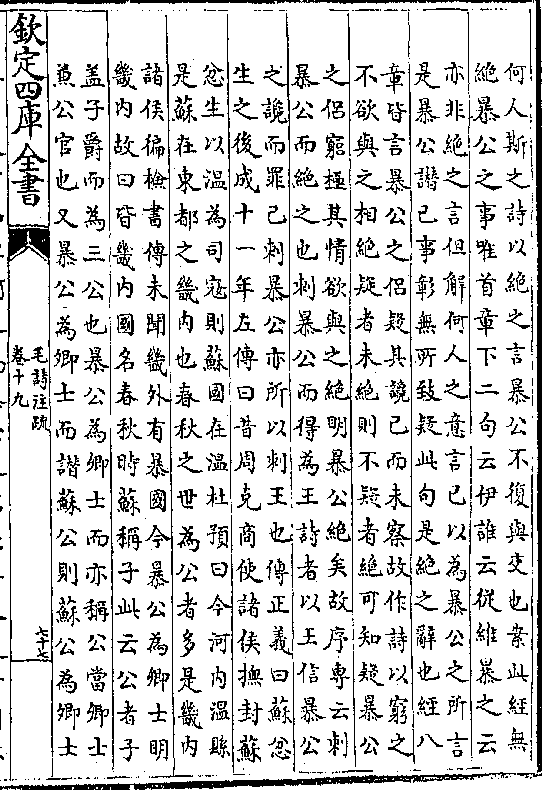 何人斯之詩以絶之言暴公不復與交也案此經無
絶暴公之事唯首章下二句云伊誰云從維暴之云
亦非絶之言但解何人之意言已以為暴公之所言
是暴公譖已事彰無所致疑此句是絶之辭也經八
章皆言暴公之侣疑其䜛已而未察故作詩以窮之
不欲與之相絶疑者未絶則不疑者絶可知疑暴公
之侣窮極其情欲與之絶明暴公絶矣故序專云刺
暴公而絶之也刺暴公而得為王詩者以王信暴公
之䜛而罪已刺暴公亦所以刺王也傳正義曰蘇忿
生之後成十一年左傳曰昔周克商使諸侯撫封蘇
忿生以溫為司宼則蘇國在溫杜預曰今河内溫縣
是蘇在東都之畿内也春秋之世為公者多是畿内
諸侯徧檢書傳未聞畿外有暴國今暴公為卿士明
畿内故曰皆畿内國名春秋時蘇稱子此云公者子
盖子爵而為三公也暴公為卿士而亦稱公當卿士
兼公官也又暴公為卿士而譖蘇公則蘇公為卿士
欽定四庫全書
毛詩注疏
卷十九
七十七